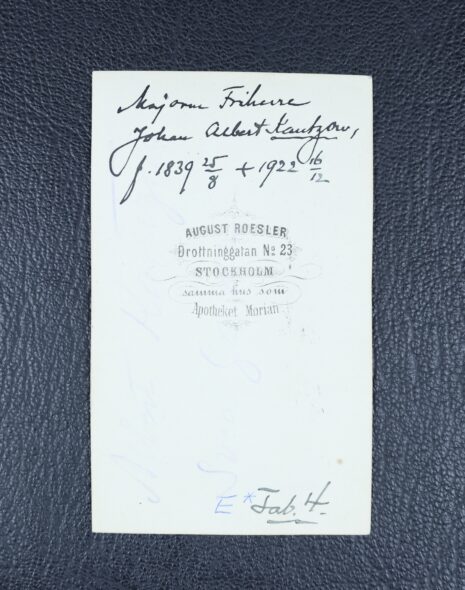 Majoren Friherre
Johan Albert Kantzow,
f. 1839 25/8 + 1922 16/12
AUGUST ROESLER
Drottninggatan No 23
STOCKHOLM
samma hus som
Apotheket Morian
E* Tab. 4.